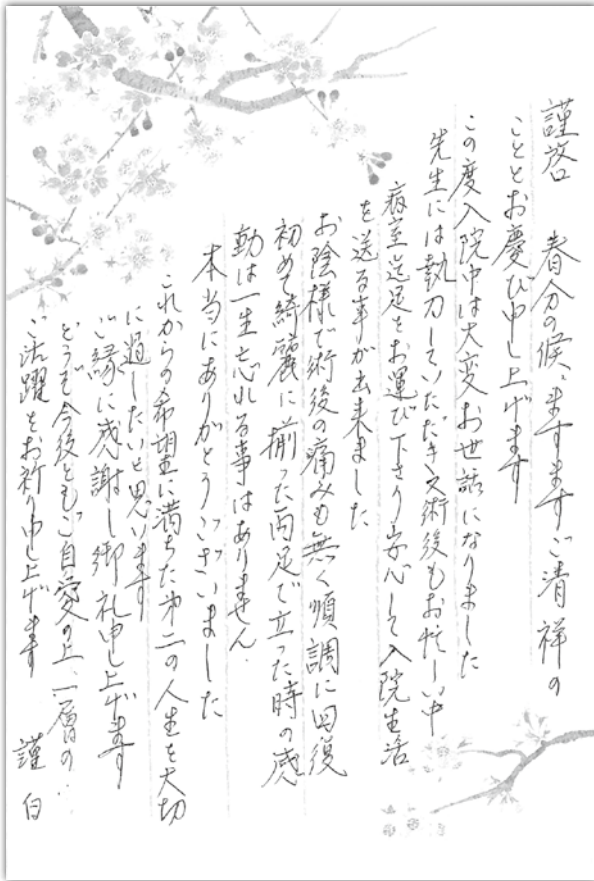 謹啓　春分の候、ますますご清祥の
こととお慶び申し上げます
この度入院中は大変お世話になりました
先生には執刀していただき又術後もお忙しい中
病室迄足をお運び下さり安心して入院生活
を送る事が出来ました
お陰様で術後の痛みも無く順調に回復
初めて綺麗に揃った両足で立った時の感
動は一生忘れる事はありません.
本当にありがとうございました
これからの希望に満ちた第二の人生を大切
に過したいと思います
ご縁に感謝し御礼申し上げます
どうぞ今後ともご自愛の上、一層の
ご活躍をお祈り申し上げます
謹白